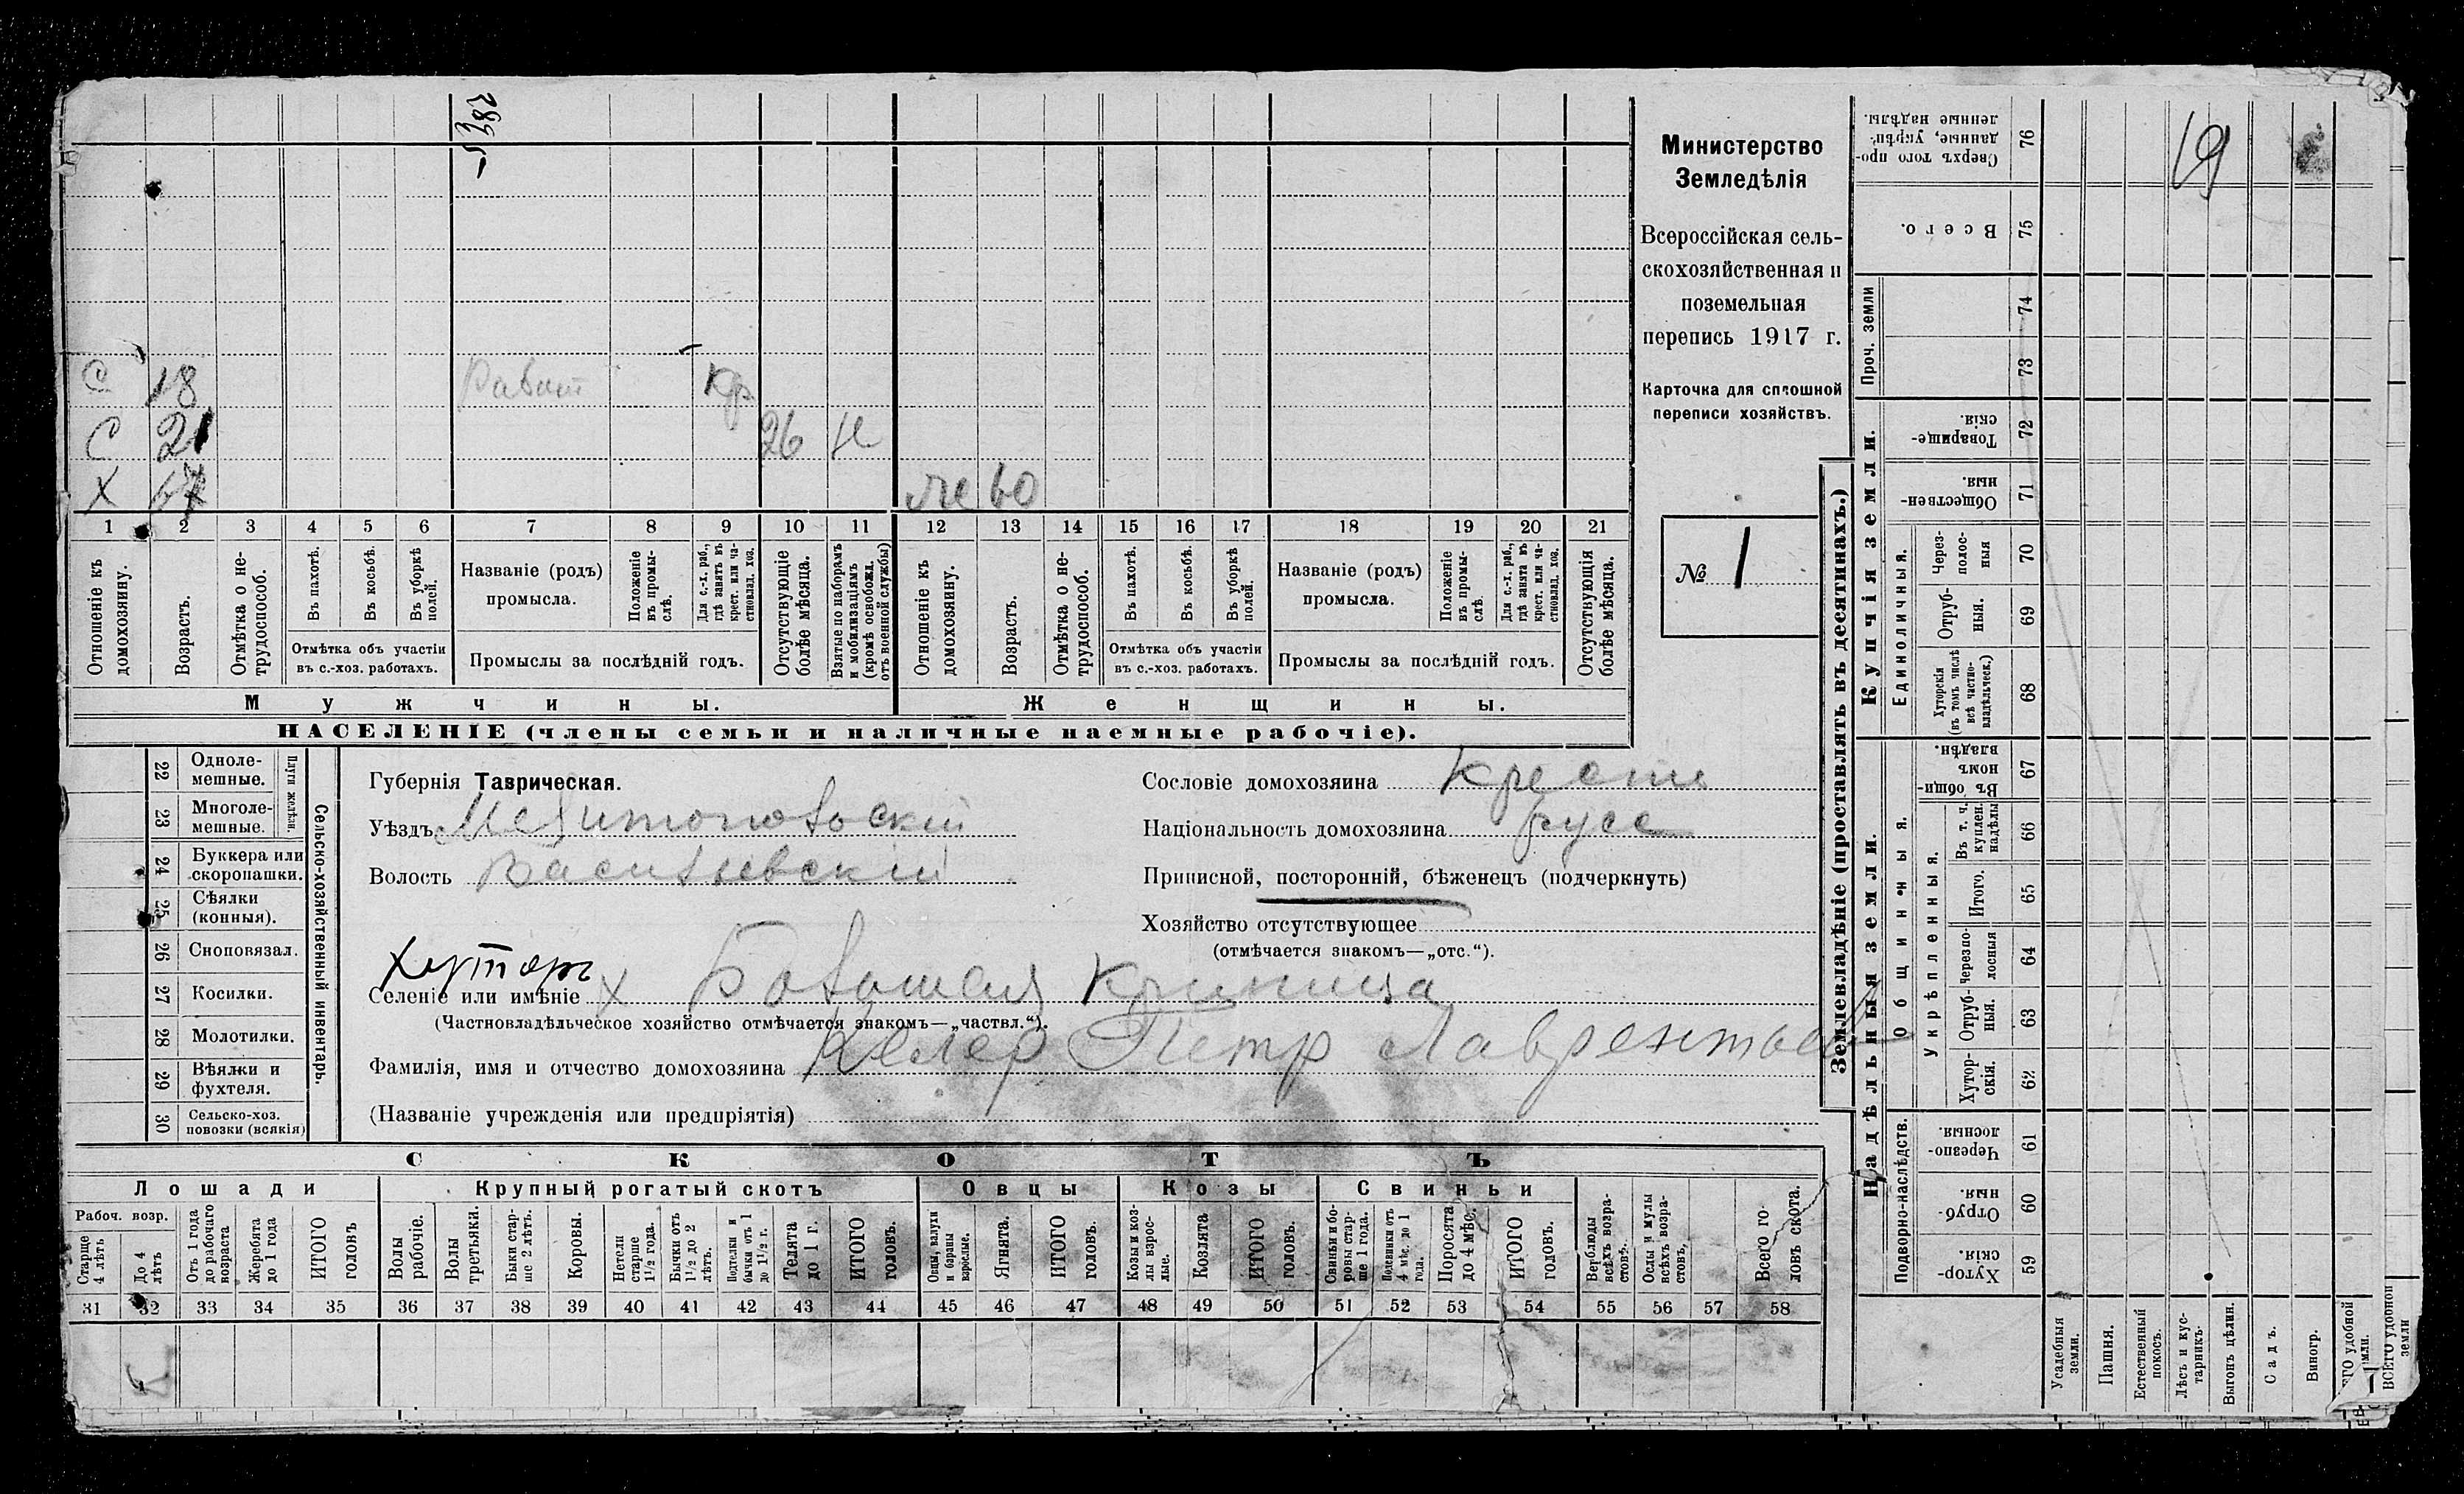 382
С 18 Работ Кр
С 21 26 Н
Х 67 же 60
1 2 3 4 5 6 7 8 9 10 11 12 13 14 15 16 17 18 19 20 21
Отношеніе къ домохозяину.
Возрастъ.
Отмѣтка о нетрудоспособ.
Въ пахотѣ.
Въ косьбѣ.
Въ уборкѣ полей.
Отмѣтка объ участіи
въ с.-хоз. работахъ.
Названіе (родъ)
промысла.
Положеніе въ промыслѣ.
Для с.-х. раб., гдѣ занятъ въ крест. или частновлад. хоз.
Промыслы за послѣдній годъ.
Отсутствующіе болѣе мѣсяца.
Взятые по наборамъ и мобилизаціямъ (кромѣ освобожд. отъ военной службы)
Отношеніе къ домохозяину.
Возрастъ.
Отмѣтка о нетрудоспособ.
Въ пахотѣ.
Въ косьбѣ.
Въ уборкѣ полей.
Отмѣтка объ участіи
въ с.-хоз. работахъ.
Названіе (родъ)
промысла.
Положеніе въ промыслѣ.
Для с.-х. раб., гдѣ занята въ крест. или частновлад. хоз.
Промыслы за послѣдній годъ.
Отсутствующія болѣе мѣсяца.
Мужчины.
Женщины.
НАСЕЛЕНІЕ (члены семьи и наличные наемные рабочіе).
Министерство
Земледѣлія
Всероссійская сель-
скохозяйственная и
поземельная
перепись 1917 г.
Карточка для сплошной
переписи хозяйствъ.
№ 1
22 Одноле-
мешные.
23 Многоле-
мешные.
Плуги желѣзн.
24 Буккера или
скоропашки.
25 Сѣялки
(конныя).
26 Сноповязал.
27 Косилки.
28 Молотилки.
29 Вѣялки и
фухтеля.
30 Сельско-хоз.
повозки (всякія)
Сельско-хозяйственный инвентарь.
Губернія Таврическая.
Уѣздъ Мелитопольскій
Волость Васильевскій
Хуторъ
Селеніе или имѣніе х Большая Криница
(Частновладѣльческое хозяйство отмѣчается знакомъ—„частвл.“).
Фамилія, имя и отчество домохозяина Келер Петр Лаврентьев
(Названіе учрежденія или предпріятія)
Сословіе домохозяина Крестъ
Національность домохозяина Русс
Приписной, посторонній, бѣженецъ (подчеркнуть)
Хозяйство отсутствующее
(отмѣчается знакомъ—„отс.“).
СКОТЪ
Лошади
Крупный рогатый скотъ
Овцы
Козы
Свиньи
Рабоч. возр.
Старше 4 лѣтъ
До 4 лѣтъ
Отъ 1 года до рабочаго возраста
Жеребята до 1 года
ИТОГО головъ
Волы рабочіе.
Волы третьяки.
Быки старше 2 лѣтъ.
Коровы.
Нетели старше 1½ года.
Бычки отъ 1½ до 2 лѣтъ.
Подтелки и бычки отъ 1 до 1½ г.
Телята до 1 г.
ИТОГО головъ.
Овцы, валухи и бараны взрослые.
Ягнята.
ИТОГО головъ.
Козы и козлы взрослые.
Козлята
ИТОГО головъ.
Свиньи и боровы старше 1 года.
Подсвинки отъ 4 мѣс. до 1 года.
Поросята до 4 мѣс.
ИТОГО головъ.
Верблюды всѣхъ возрастовъ.
Ослы и мулы всѣхъ возрастовъ.
Всего головъ скота.
31 32 33 34 35 36 37 38 39 40 41 42 43 44 45 46 47 48 49 50 51 52 53 54 55 56 57 58
Землевладѣніе (проставлять въ десятинахъ.)
Надѣльныя земли.
Купчія земли.
Проч. земли
Подворно-наслѣдств.
Общинныя.
Укрѣпленныя.
Единоличныя.
19
76 Сверхъ того проданные, укрѣпленные надѣлы.
75 Всего.
74
73
72 Товарищескія.
71 Общественныя.
70 Черезполосныя
69 Отрубныя.
68 Хуторскія (въ томъ числѣ всѣ частновладѣльческ.)
67 Въ общиномъ владѣн.
66 Въ т. ч. куплен. надѣлы
65 Итого.
64 Черезполосныя
63 Отрубныя.
62 Хуторскія.
61 Черезполосныя.
60 Отрубныя.
59 Хуторскія.
Усадебныя земли.
Пашня.
Естественный покосъ.
Лѣсъ и кустарникъ.
Выгонъ цѣлин.
Садъ.
Виногр.
ВСЕГО удобной земли